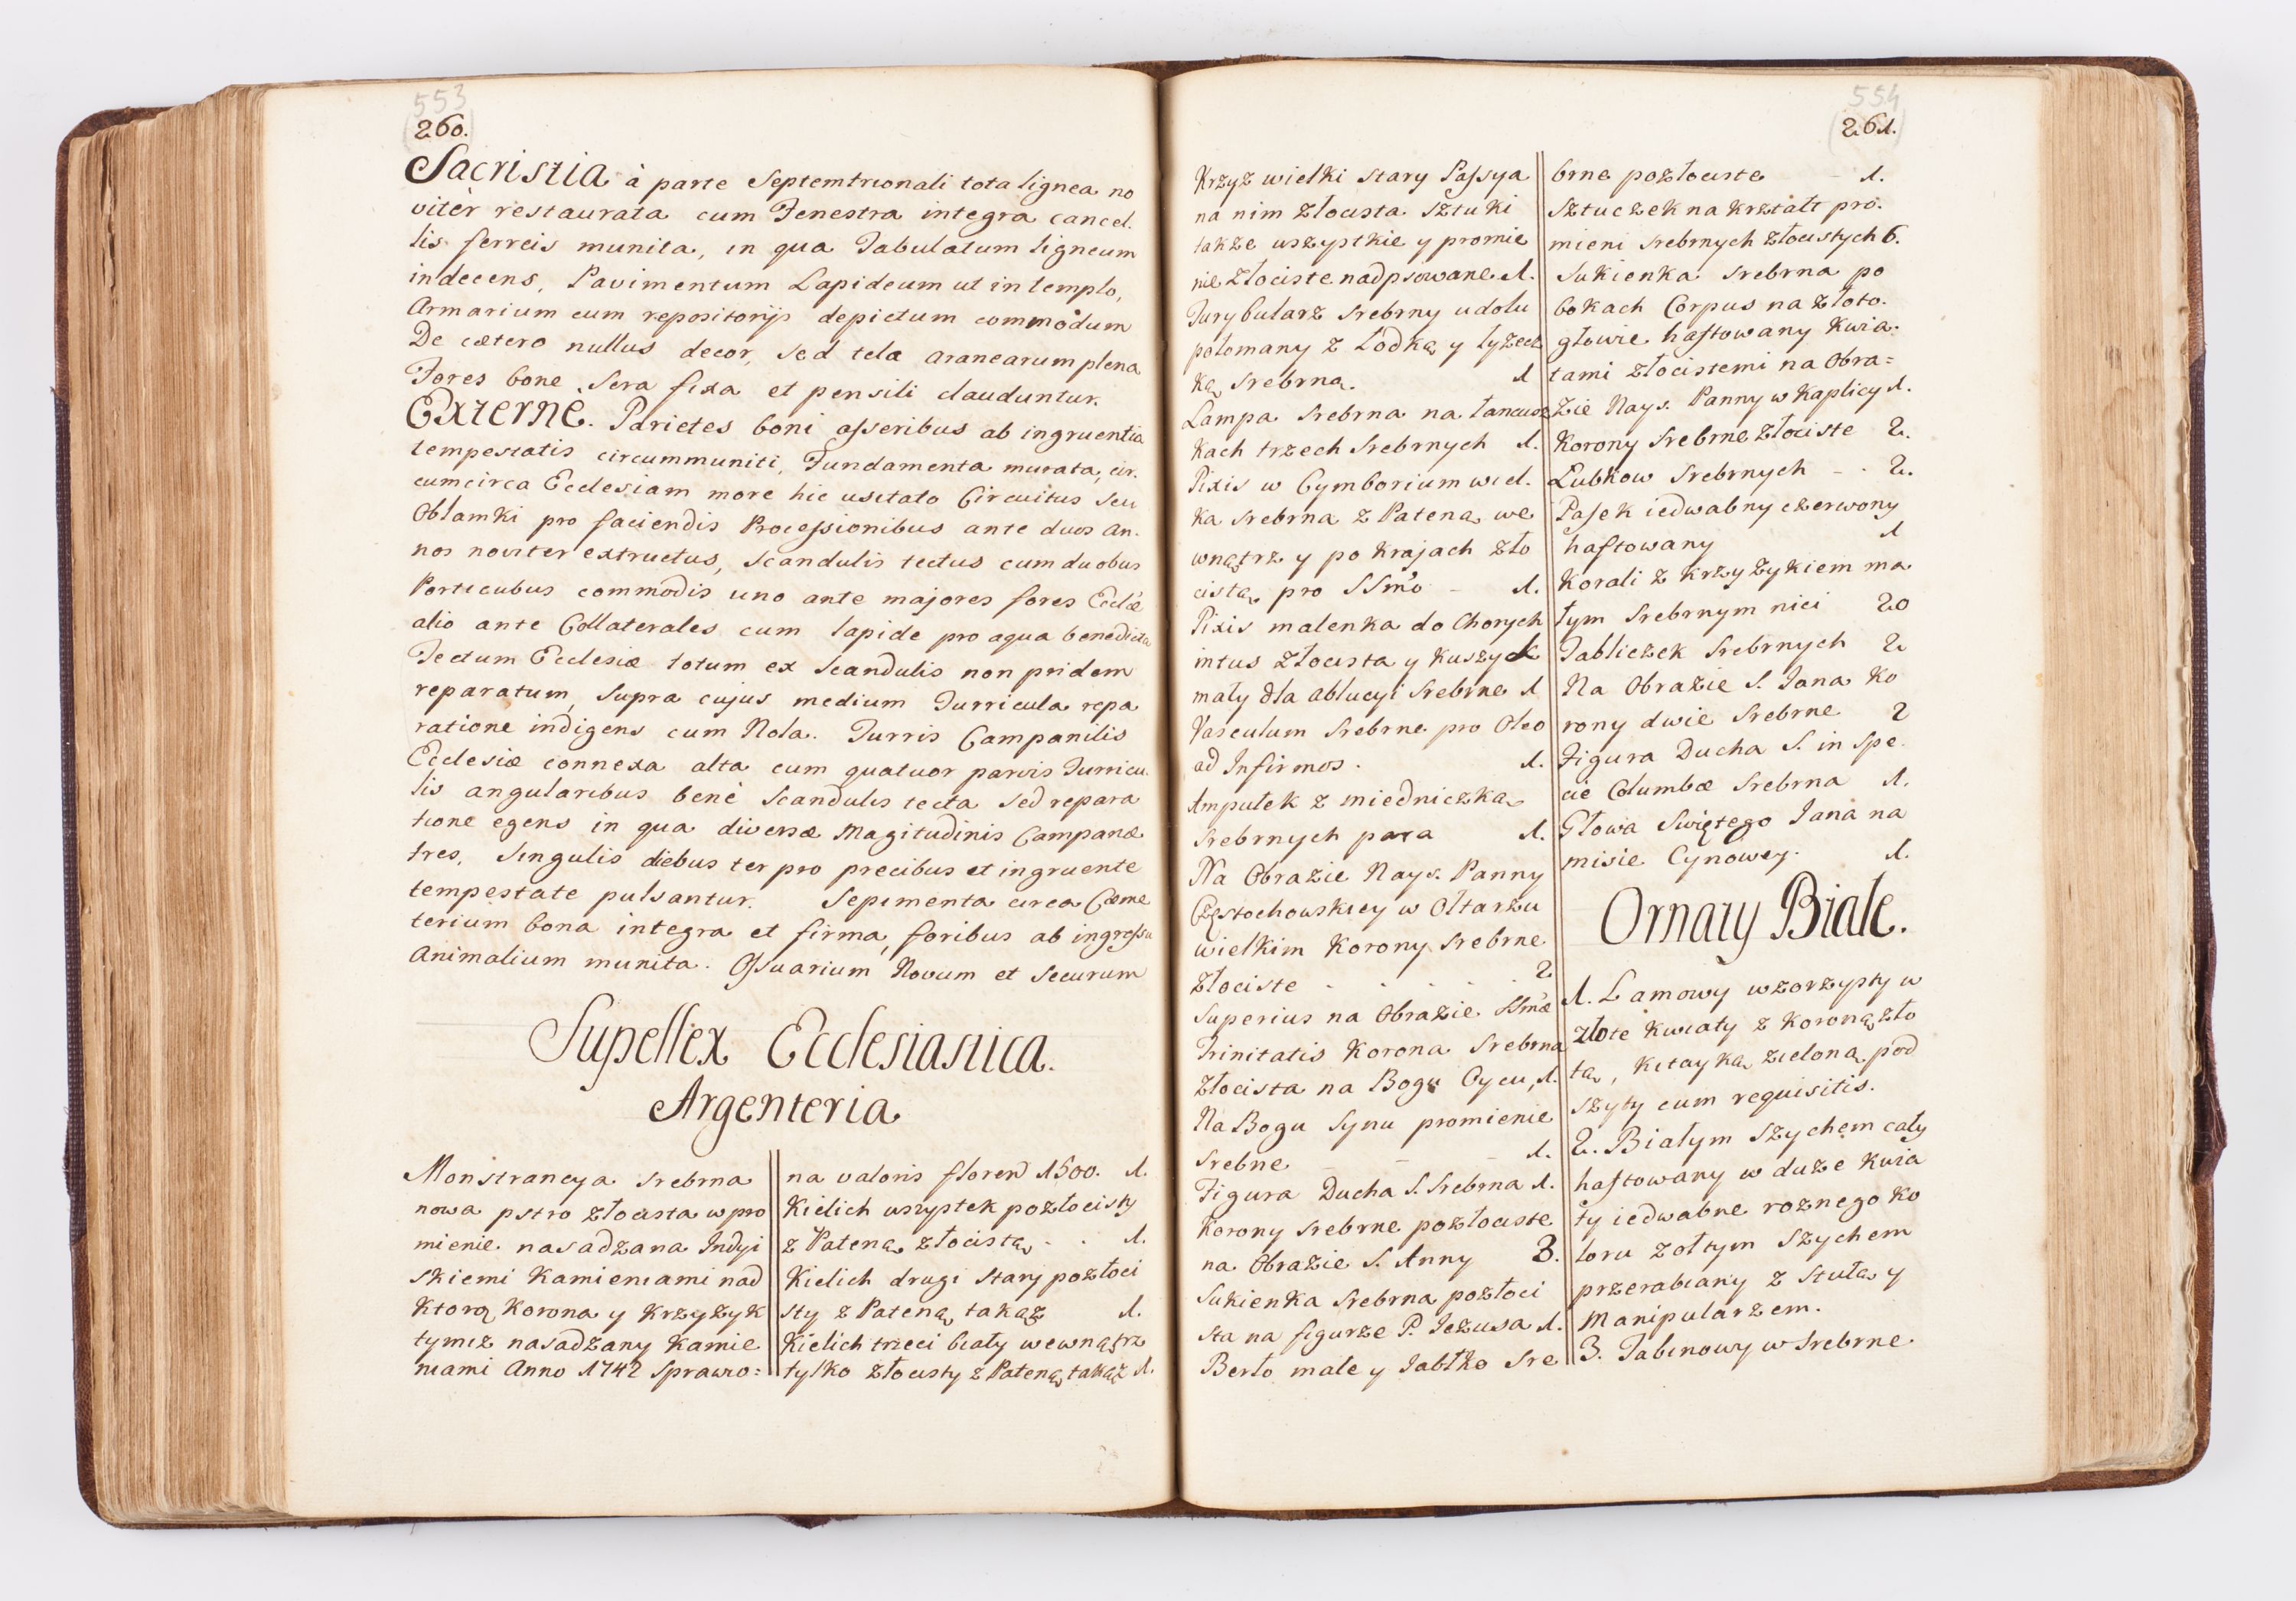 553
260.
Sacristia à parte Septemtrionali tota lignea no
vitèr restaurata cum Fenestra integra cancel.
lis ferreis munita, in qua Tabulatum ligneum
indecens, Pavimentum Lapideum ut in templo,
Armarium cum repositorijs depictum commodum
De cætero nullus decor, sed telæ aranearum plena
Fores bone, Sera fixa et pensili clauduntur.
Externè. Parietes boni asseribus ab ingruentia
tempestatis circummuniti, Fundamenta murata, cir.
cumcirca Ecclesiam more hic usitato Circuitus seu
Obłamki pro faciendis Processionibus ante duos an.
nos noviter extructus, scandulis tectus cum duobus
Porticubus commodis uno ante majores fores Eccłæ
alio ante Collaterales cum lapide pro aqua benedicta
Tectum Ecclesiæ totum ex Scandulis non pridem
reparatum, Supra cujus medium Turricula repa
ratione indigens cum Nola. Turris Campanilis
Ecclesiæ connexa alta cum quatuor parvis Turricu.
lis angularibus benè Scandulis tecta sed repara
tione egens in qua diversæ Magitudinis Campanæ
tres, Singulis diebus ter pro precibus et ingruente
tempestate pulsantur. Sepimenta circa Cæme
terium bona integra et firma, foribus ab ingressu
Animalium munita. Ossuarium Novum et Securum
Supellex Ecclesiastica.
Argenteria
Monstrancya srebrna
nowa pstro złocista w pro
mienie nasadzana Indyi
skiemi Kamieniami nad
Ktorą Korona y Krzyżyk
tymiż nasadzany Kamie
niami Anno 1742 Sprawio=
na valoris floren 1500. 1.
Kielich wszystek pozłocisty
z Pateną złocistą - . 1.
Kielich drugi stary pozłoci
sty z Pateną takąż 1.
Kielich trzeci biały wewnątrz
tylko złocisty z Pateną takąż 1.
554
261.
Krzyż wielki stary Passya
na nim złocista sztuki
także wszystkie y promie
nie złociste nadpsowane 1.
Turybularz srebrny u dołu
połomany z Łodką y łyżecz
ką srebrną. 1
Lampa srebrna na łancusz
kach trzech srebrnych 1.
Pixis w Cymborium wiel.
ka srebrna z Pateną we
wnątrz y po krajach zło
cistą pro SSmo - 1.
Pixis malenka do Chorych
intus złocista y kuszyk
mały dla ablucyi srebrne 1
Vasculum srebrne pro Oleo
ad Infirmos. 1.
Ampułek z miedniczką
srebrnych para 1.
Na Obrazie Nays. Panny
Częstochowskiey w Ołtarzu
wielkim Korony srebrne
złociste - - - - 2
Superius na Obrazie SSmæ
Trinitatis Korona srebrna
złocista na Bogu Oycu, 1.
Na Bogu Synu promienie
srebne - - - 1.
Figura Ducha S. srebrna 1.
Korony srebrne pozłociste
na Obrazie S. Anny 3.
Sukienka srebrna pozłoci
sta na figurze P. Jezusa 1.
Berło małe y Jabłko sre
brne pozłociste - 1.
Sztuczek na krztałt pro.
mieni srebrnych złocistych 6.
Sukienka srebrna po
bokach Corpus na złoto.
głowie haftowany kwia.
tami złocistemi na Obra=
zie Nays. Panny w Kaplicy 1.
Korony srebrne złociste 2.
Łubkow srebrnych - . 2.
Pasek iedwabny czerwony
haftowany 1
Korali z krzyżykiem ma
łym srebrnym nici 20
Tabliczek srebrnych 2
Na Obrazie S. Jana Ko
rony dwie srebrne 2
Figura Ducha S. in Spe.
cie Columbæ srebrna 1.
Głowa Swiętego Jana na
misie Cynowey. 1.
Ornaty Białe.
1. Lamowy wzorzysty w
złote kwiaty z koroną zło
tą, kitayką zieloną pod
szyty cum requisitis.
2. Białym szychem cały
haftowany w duże kwia
ty iedwabne roznego ko
loru zołtym szychem
przerabiany z stułą y
Manipularzem.
3. Tabinowy w srebrne